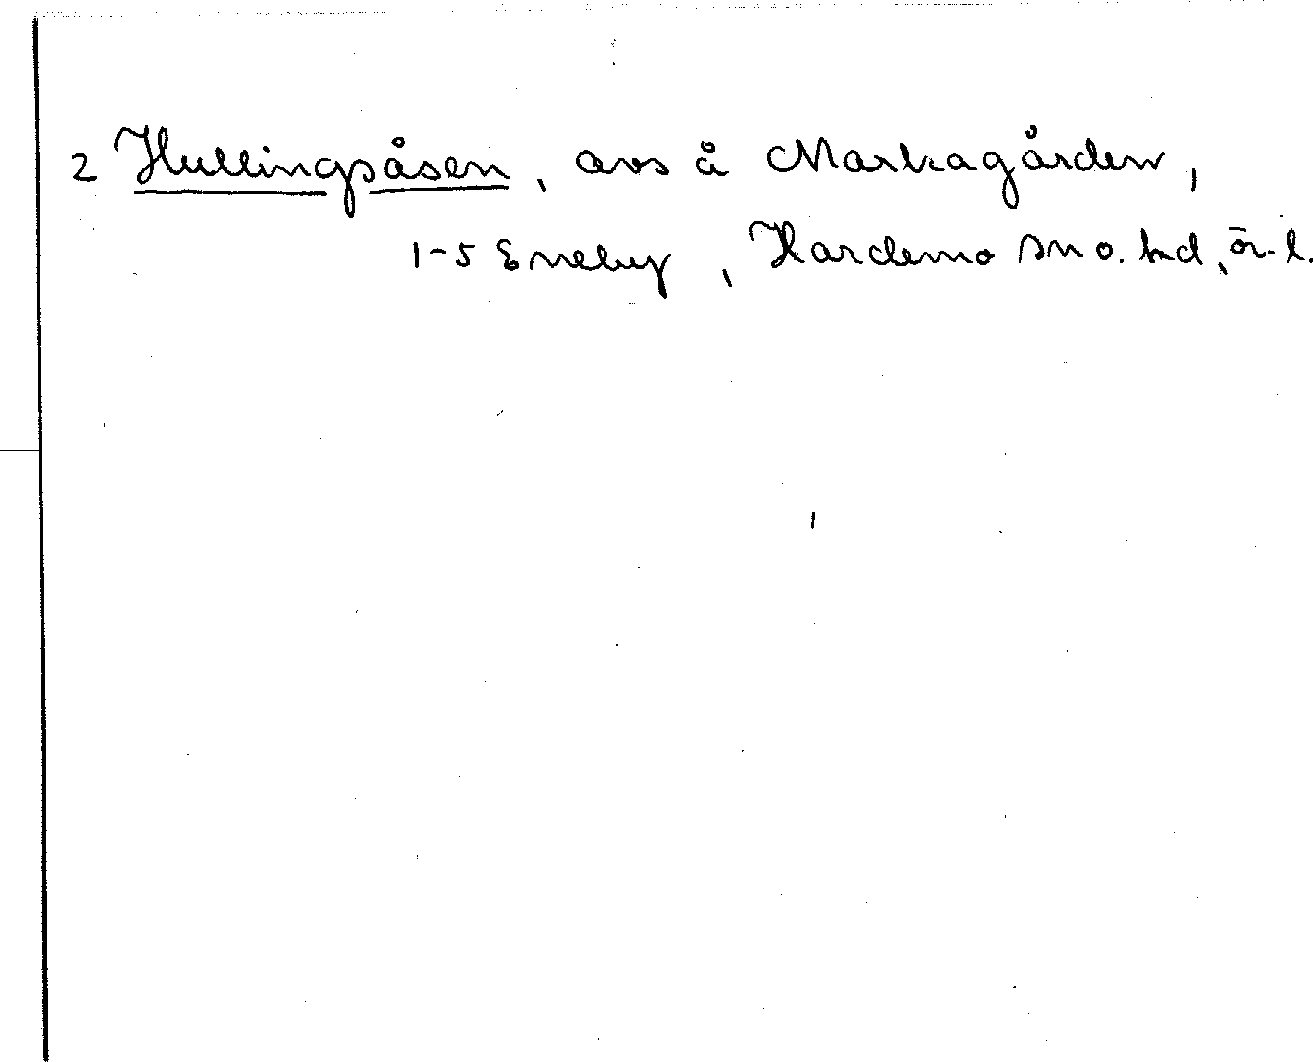 2 Hullingsåsen, avs å Markagården,
1-5 Eneby, Hardemo sn o. hd, ör. l.